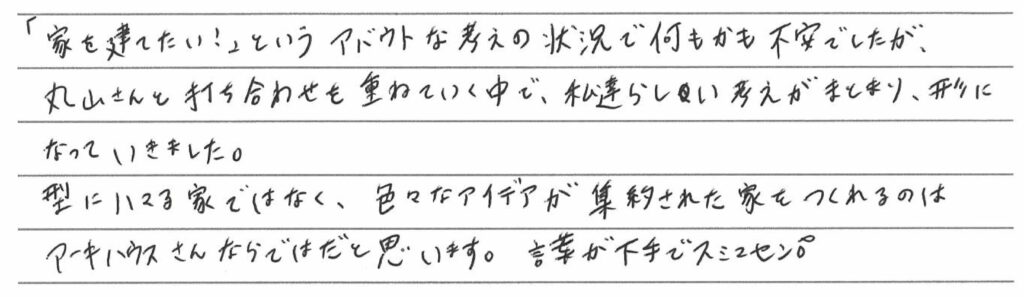 「家を建てたい！」というアバウトな考えの状況で何もかも不安でしたが、
丸山さんと打ち合わせを重ねていく中で、私達らしい考えがまとまり、形に
なっていきました。
型にハマる家ではなく、色々なアイデアが集約された家をつくれるのは
アーキハウスさんならではだと思います。言葉が下手でスミマセン。